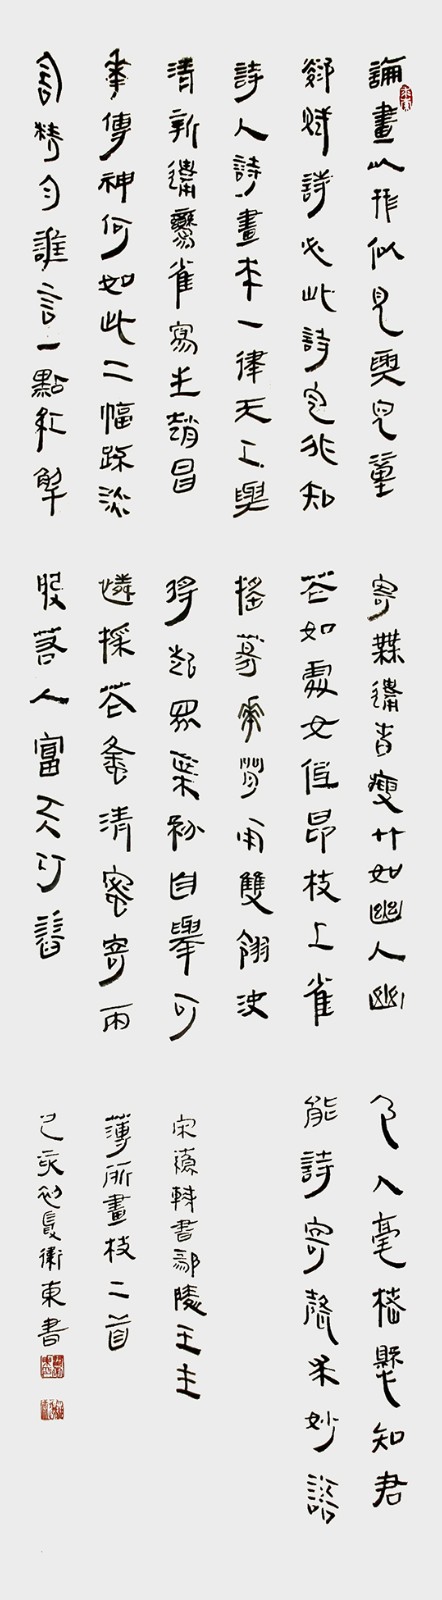 論畫以形似見與兒童
鄰賦詩必此詩定非知
詩人詩畫本一律天工與
清新邊鸞雀寫生趙昌
華傳神何如此二幅疎淡
含精勻誰言一點紅解
寄無邊春瘦竹如幽人幽
花如處女低昂枝上雀
搖蕩花間雨雙翎決
將起眾葉紛自舉可
憐採花蜂清蜜寄兩
股若人富天巧春
色入毫楮懸知君
能詩寄聲求妙語
宋蘇軾書鄢陵王主
簿所畫枝二首
己亥初夏衛東書